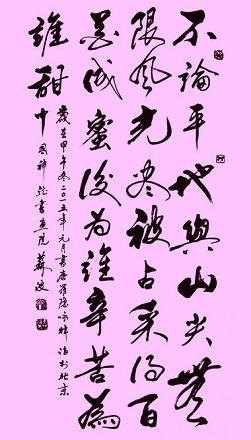 不論平地與山尖無
限風光盡被占采得百
花成蜜後為誰辛苦為
誰甜
歲在甲午冬二〇一五年元月書唐羅隱咏蜂詩於北京
書畫院